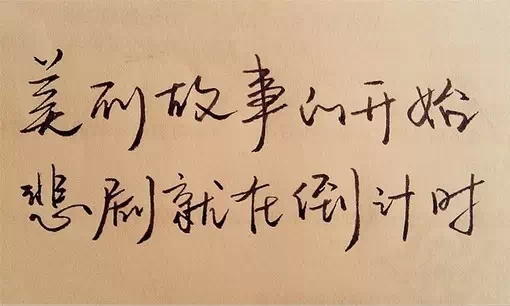 美丽故事的开始
悲剧就在倒计时